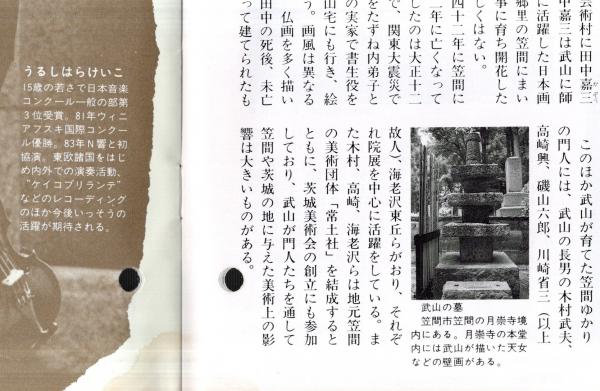 芸術村に田中嘉三
田中嘉三は武山に師
に活躍した日本画
郷里の笠間にまい
事に育ち開花した
しくはない。
四十二年に笠間に
二年に亡くなって
で、関東大震災で
したのは大正十二
をたずね内弟子と
の実家で書生役を
山宅にも行き、絵
う。画風は異なる
仏画を多く描い
田中の死後、未亡
って建てられたも
このほか武山が育てた笠間ゆかり
の門人には、武山の長男の木村武夫、
高崎興、磯山六郎、川崎省三（以上
故人）、海老沢東丘らがおり、それぞ
れ院展を中心に活躍をしている。ま
た木村、高崎、海老沢らは地元笠間
の美術団体「常土社」を結成すると
ともに、茨城美術会の創立にも参加
しており、武山が門人たちを通して
笠間や茨城の地に与えた美術上の影
響は大きいものがある。
武山の墓
笠間市笠間の月崇寺境
内にある。月崇寺の本堂
内には武山が描いた天女
などの壁画がある。
うるしはらけいこ
15歳の若さで日本音楽
コンクール一般の部第
3位受賞。81年ヴィニ
アフスキ国際コンクー
ル優勝。83年N響と初
協演。東欧諸国をはじ
め内外での演奏活動、
“ケイコブリランテ”
などのレコーディング
のほか今後いっそうの
活躍が期待される。